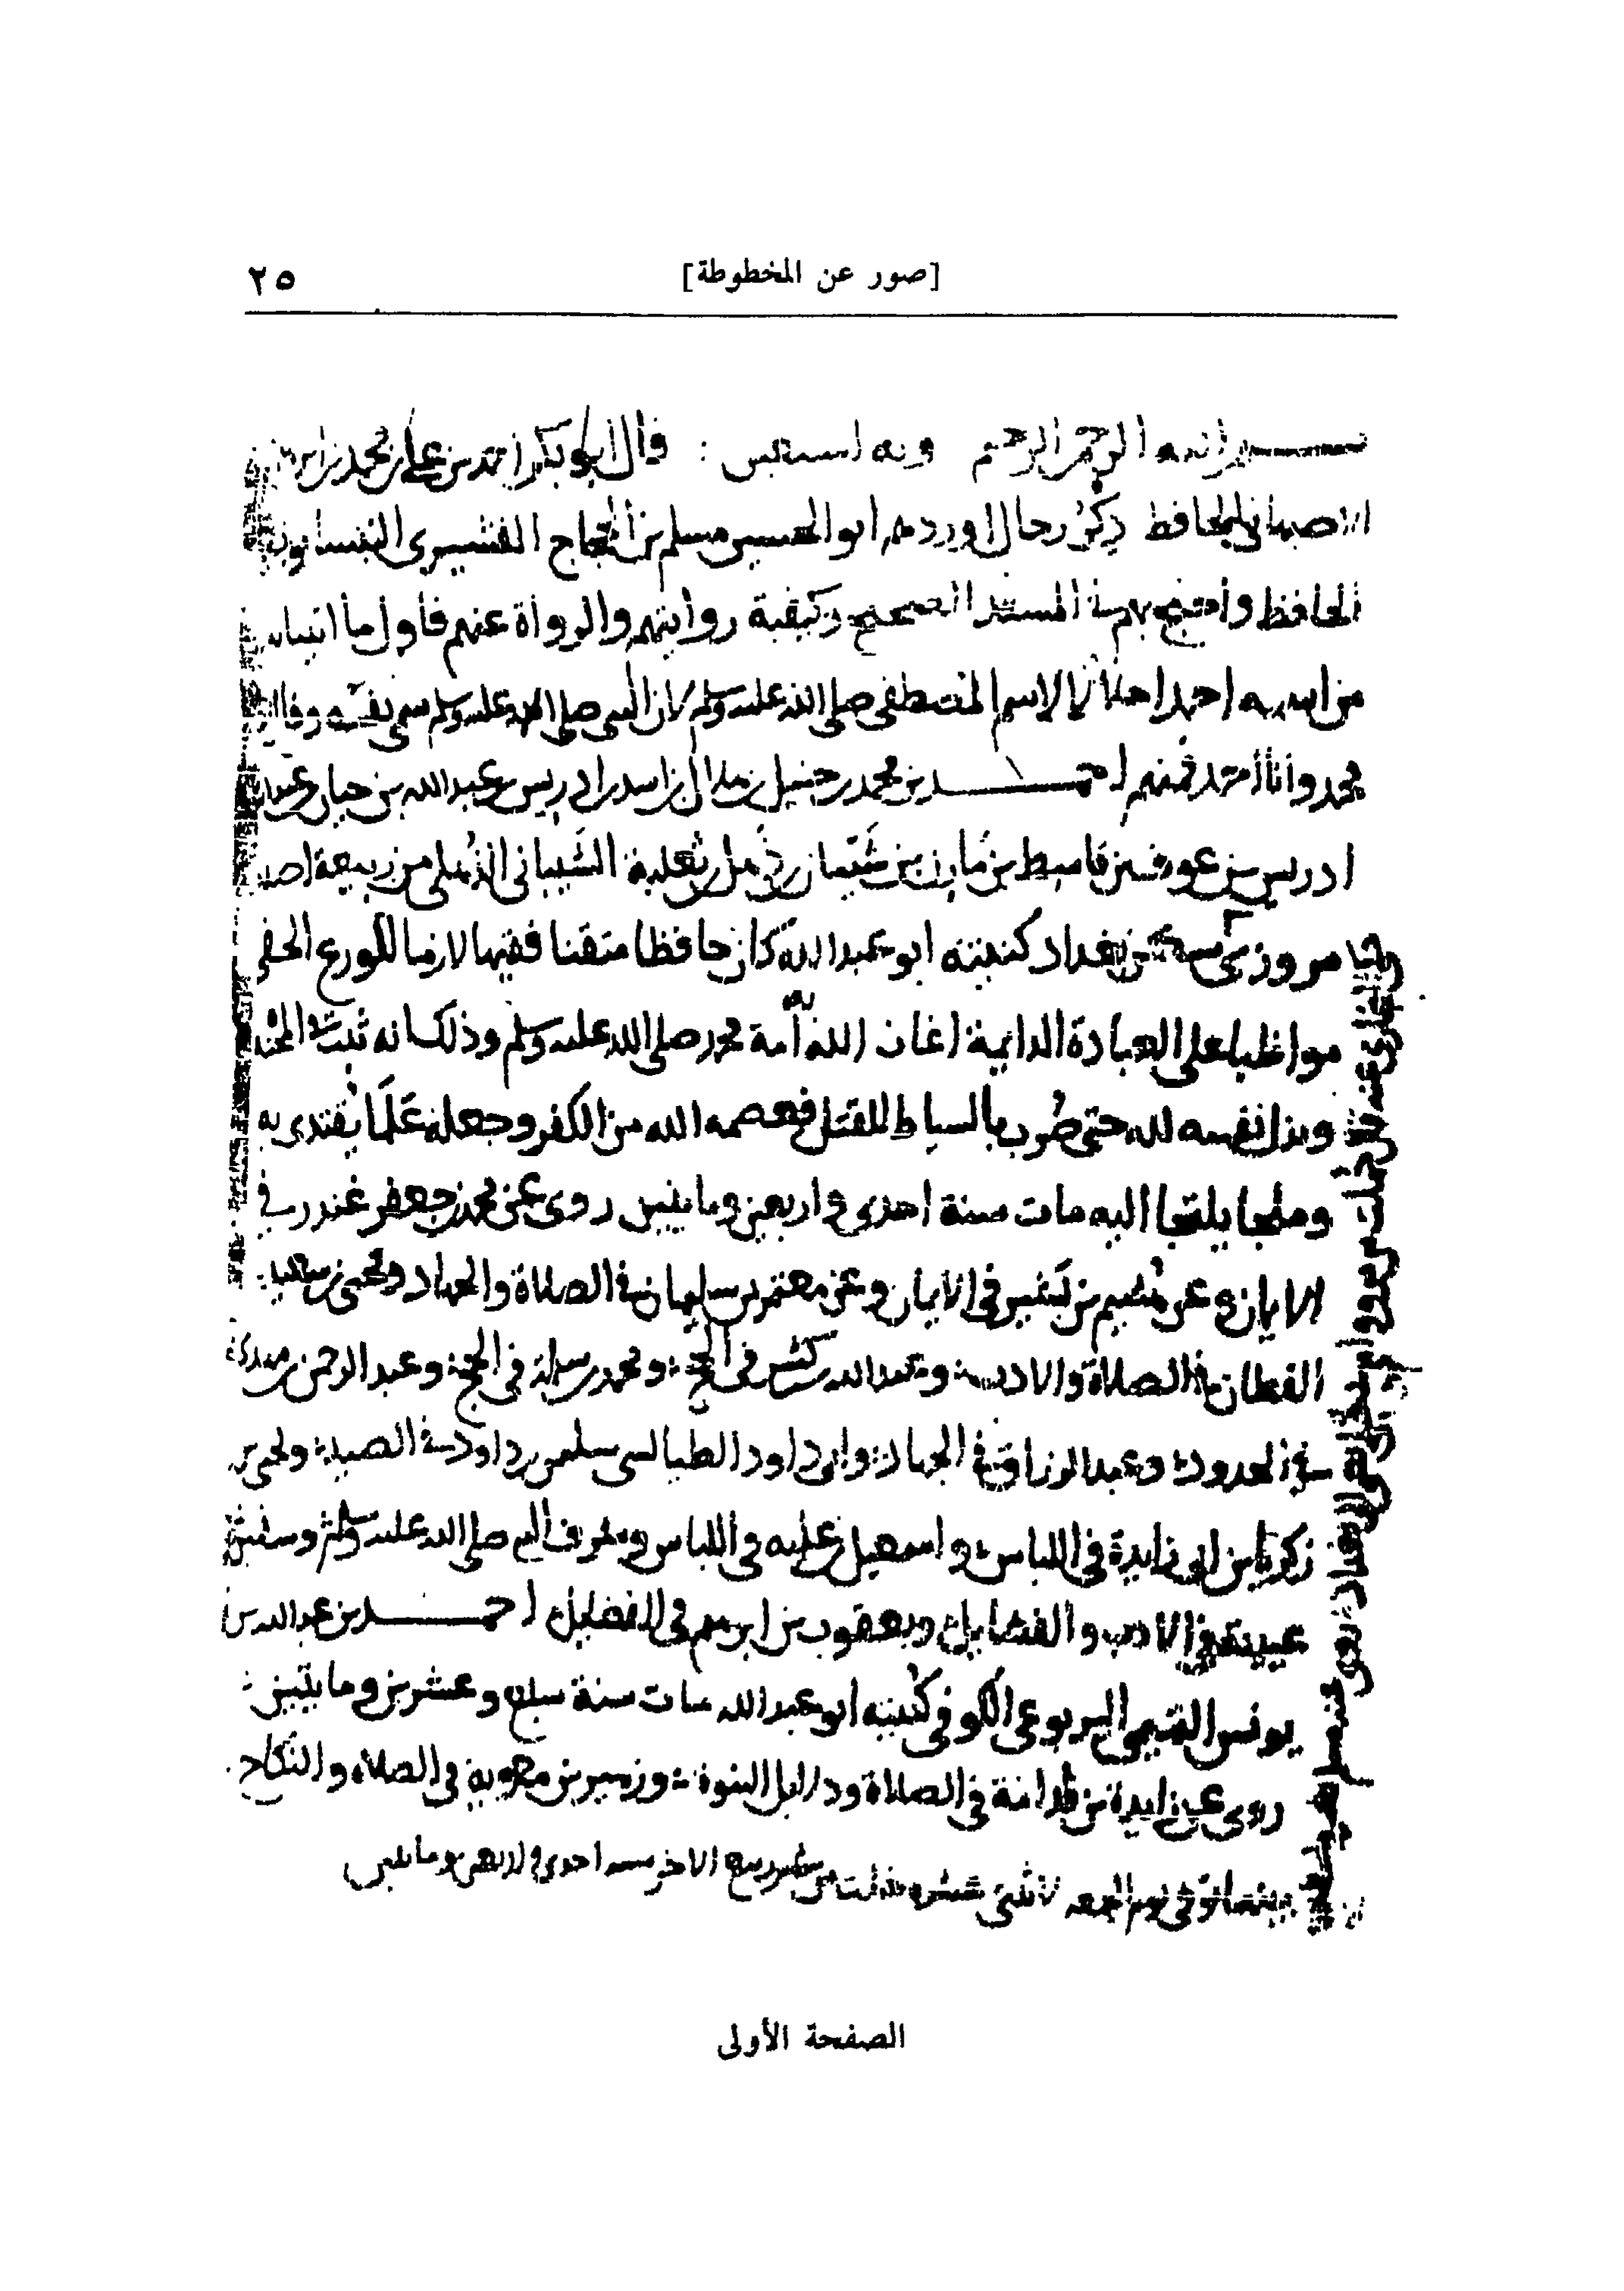 [صور عن المخطوطة]
٢٥
بسم الله الرحمن الرحيم وبه استعين : قال أبو بكر احمد بن علي بن محمد بن
الاصبهاني الحافظ ذكر رجال اوردهم ابو الحسين مسلم بن الحجاج القشيري النيسابوري
الحافظ واحتج بهم في المسند الصحيح وكيفية روايتهم والرواة عنهم فأول ما
من اسمه احمد لاسم المصطفى صلى الله عليه وسلم لان النبي صلى الله عليه وسلم سمى نفسه وقال
محمد وأنا أحمد فمنهم احمد بن محمد بن حنبل بن هلال بن اسد بن ادريس بن عبد الله بن حيان
ادريس بن عوف بن قاسط بن مازن بن شيبان بن ذهل بن ثعلبة الشيباني الذهلي من ربيعة
مروزي سكن بغداد كنيته ابو عبد الله كان حافظا متقنا فقيها لازما للورع الخفي
مواظبا على العبادة الدايمة اغاث الله أمة محمد صلى الله عليه وسلم وذلك انه ثبت في المحنة
وبذل نفسه لله حتى ضرب بالسياط للقتل فعصمه الله من الكفر وجعله علما يقتدى به
وملجا يلتجا اليه مات سنة احدى واربعين ومايتين روى عن محمد بن جعفر غندر في
الايمان وعن هشيم بن بشير في الايمان وعن معتمر بن سليمان في الصلاة والجهاد ويحيى بن سعيد
القطان في الصلاة والادب وعبد الله بن في الحج ومحمد بن سلمة في الحج وعبد الرحمن بن مهدي
في الحدود وعبد الرزاق في الجهاد وابي داود الطيالسي سليمن بن داود في الصيد ويحيى بن
زكريا بن ابي زايدة في اللباس واسمعيل بن علية في اللباس ومعرف النبي صلى الله عليه وسلم وسفين بن
عيينة في الادب والفضايل ويعقوب بن ابرهيم في الفضايل احمد بن عبد الله بن
يونس التميمي اليربوعي الكوفي كنيته ابو عبد الله مات سنة سبع وعشرين ومايتين
روى عن زايدة بن قدامة في الصلاة ودلايل النبوة وزهير بن معوية في الصلاة والنكاح
توفي يوم الجمعة لاثنتي عشرة خلت من شهر ربيع الاخر سنة احدى واربعين ومايتين
الصفحة الأولى